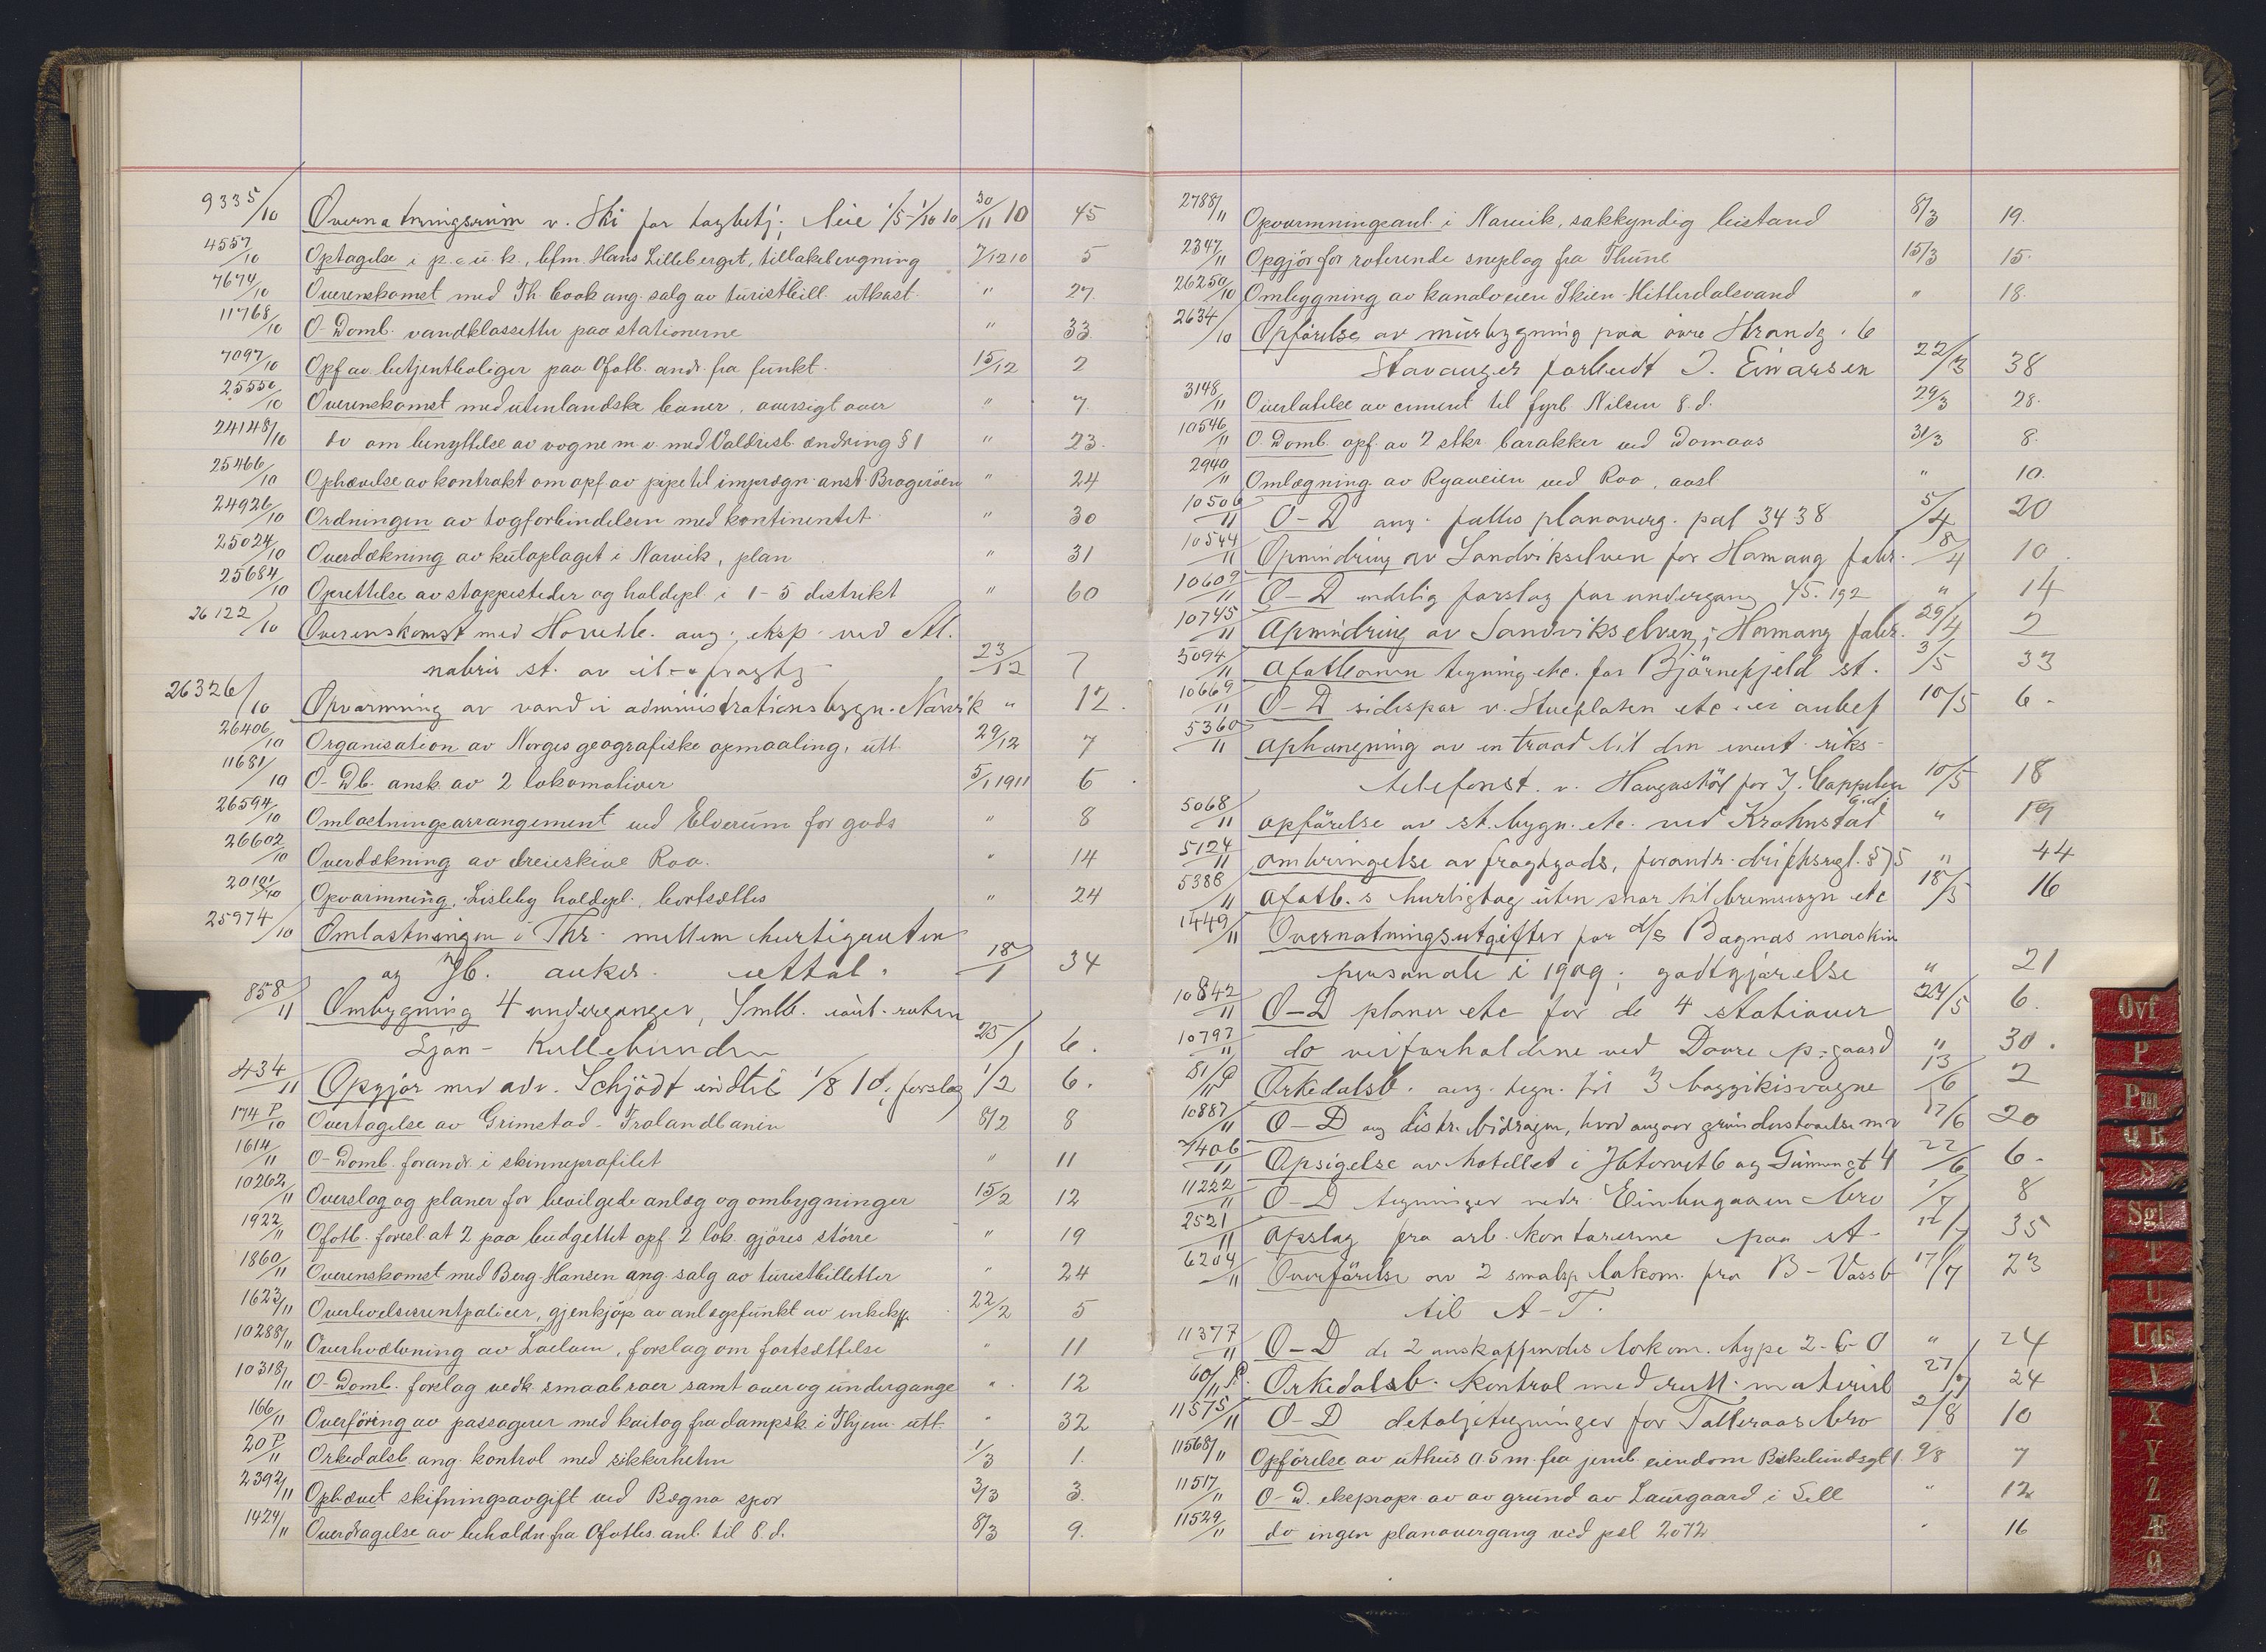 9335/10 Overnatningsrum v. Ski for togbetj; leie 1/5-1/10 10 30/11 10 45
4557/10 Optagelse i p.c.u.k., bfm. Hans Lilleberget, 7/12 10 5
7674/10 Overenskomst med Th. Cook ang. salg av turistbill. utkast. " 27.
11768/10 O-Domb. vandklossetter paa stationerne " 33
7097/10 Opf. av betjentboliger paa Ofotb. andr. fra funkt. 15/12 2
25550/10 Overenskomst med utenlandske baner, oversigt over " 7.
24148/10 do om benyttelse av vogne m.v. med Valdresb. ændring § 1 " 23.
25466/10 Ophævelse av kontrakt om opf. av pipe til imprægn. anst. Bragerøen " 24
24926/10 Ordningen av togforbindelsen med kontinentet " 30
25024/10 Overdækning av kuloplaget i Narvik, plan " 31
25684/10 Oprettelse av stoppesteder og holdepl. i 1-5 distrikt " 60
26122/10 Overenskomst med Hovedb. ang. eksp. ved Al.
nabru st. av il- & fragtg 23/12 7
26326/10 Opvarmning av vand i administrationsbygn. Narvik " 12.
26406/10 Organisation av Norges geografiske opmaaling, utt. 29/12 7
11681/10 O-Db. ansk. av 2 lokomotiver 5/1 1911 6
26594/10 Omlastningsarrangement ved Elverum for gods " 8
26602/10 Overdækning av dreieskive Roa. " 14
20101/10 Opvarmning, Lisleby holdepl., bortsættes " 24
25974/10 Omlastningen i Thr. mellem hurtigruten
og Jb. anker. uttal. 18/1 34
858/11 Ombygning 4 underganger, Smlb. paa ruten
Ljan - Kullebunden 25/1 6.
434/11 Opgjør med adv. Schjødt indtil 1/8 10, forslag 1/2 6.
174 P/10 Overtagelse av Grimstad-Frolandbanen 8/2 8
1614/11 O-Domb. forandr. i skinneprofilet " 11
10262/11 Overslag og planer for bevilgede anlæg og ombygninger 15/2 12
1922/11 Ofotb. foresl. at 2 paa budgettet opf. 2 lok. gjøres større " 19
1860/11 Overenskomst med Berg-Hansen ang. salg av turistbilletter " 24
1623/11 Overlevelsesrentpoliser, gjenkjøp av anlægsfunkt. av enkekp. 22/2 5
10288/11 Overhvælvning av Loelven, forslag om fortsættelse " 11
10318/11 O-Domb. forslag vedk. smaabroer samt over og undergange " 12
166/11 Overføring av passagerer med kaitog fra dampsk. i Thjem. utt. " 32
20 P/11 Orkedalsb. ang. kontrol med sikkerheten 1/3 1.
2392/11 Ophævet skiftningsavgift ved Bøgna spor 3/3 3.
1424/11 Overdragelse av beholdn. fra Ofotbs. anl. til 8. d. 8/3 9.
2788/11 Opvarmningsanl. i Narvik, sakkyndig bistand 8/3 19.
2347/11 Opgjør for roterende sneplog fra Thune 15/3 15.
26250/10 Ombygning av kanalveien Skien-Hitterdalsvand " 18.
2634/10 Opførelse av mursbygning paa øvre Strandg. 6
Stavanger forbudt J. Einarsen 22/3 38
3148/11 Overlatelse av cement til fyrb. Nilsen 8. d. 29/3 28.
10546/11 O-Domb. opf. av 2 stkr. barakker ved Domaas 31/3 8.
2940/11 Omlægning av Ryaveien ved Roa, avsl. " 10.
10506/11 O-D ang. fælles planoverg. pæl 3438 5/4 20
10544/11 Opmudring av Sandvikselven for Hamang fabr. 8/4 10.
10609/11 O-D endelig forslag for undergang 45.192 " 14
10745/11 Opmudring av Sandvikselven; Hamang fabr. 29/4 2
5094/11 Ofotbanen tegning etc. for Bjørnefjeld st. 3/5 33
10669/11 O-D sidespor v. Stueflaten etc. ei anbef. 10/5 6.
5360/11 Ophængning av en traad til den event. riks-
telefonst. v. Haugastøl for J. Cappelen 10/5 18
5068/11 Opførelse av st.bygn. etc. ved Krohnstad " 19
5124/11 Ombringelse av fragtgods, forandr. driftsregl. § 75 " 44
5388/11 Ofotb.s hurtigtog uten snor til bremsevogn etc 18/5 16
1449/11 Overnatningsutgifter for d/s Bagnas maskin
personale i 1909; godtgjørelse " 21
10842/11 O-D planer etc for de 4 stationer 24/5 6.
10797/11 do veiforholdene ved Dovre p.-gaard " 30.
51/11 P Orkedalsb. ang. tegn. til 3 boggikisvogne 13/6 2
10887/11 O-D ang distr. bidragen, hvad angaar grunderstatelse m.v 17/6 20
5406/11 Opsigelse av hotellet i Jbtorvet 6 og Gunneriusgt 4 22/6 6.
11222/11 O-D tegninger vedr. Einbugaaen bro 1/7 8
2521/11 Opslag fra arb. kontorerne paa st. 12/7 35
6204/11 Overførelse av 2 smalsp. lokom. fra B-Vossb 17/7 23
til A-T.
11377/11 O-D de 2 anskaffendes lokom. type 2-6-0 " 24
60/11 P. Orkedalsb. Kontrol med rull. materiel 27/7 24
11575/11 O-D detaljtegninger for Talleraas bro 2/8 10
11568/11 Opførelse av uthus 0.5 m. fra jernb. eiendom Biskelundsgt 1. 9/8 7
11517/11 O-D. ekspropr. av av grund av Laurgaard i Sell " 12
11529/11 do ingen planovergang ved pæl 2072 " 16
Ovf
P
Pm
Q R
S
Sgl
T
U
Uds
V
X
Y
Z
Æ
Ø